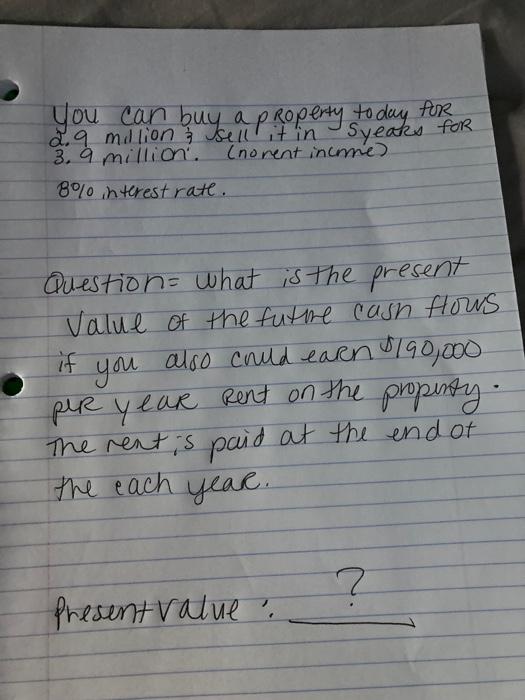 You can buy a property today for
2.9 million & sell it in 5 years for
3.9 million. (no rent income)
8% interest rate.
Question= what is the present
Value of the future cash flows
if you also could earn $190,000
per year Rent on the property.
The rent is paid at the end of
the each year.
?
Present value :